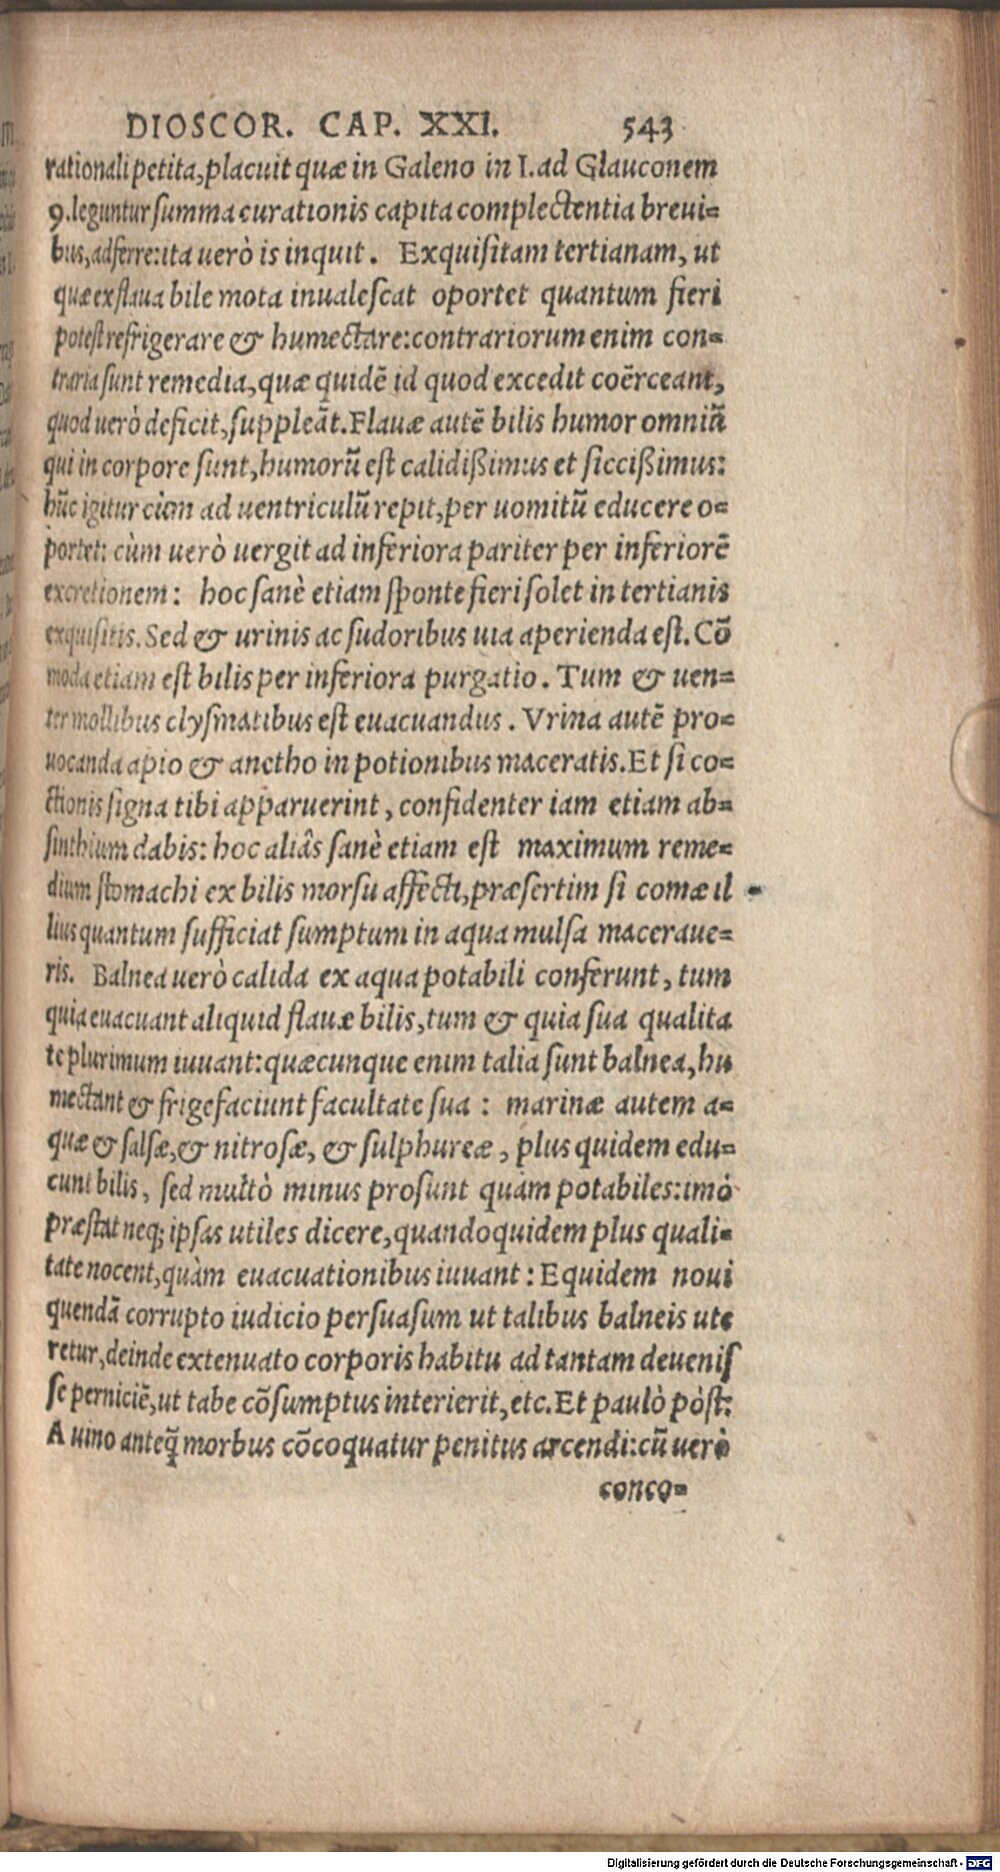 DIOSCOR. CAP. XXI. 543
rationali petita, placuit quæ in Galeno in I. ad Glauconem
9. leguntur summa curationis capita complectentia breui-
bus, adferre: ita uerò is inquit. Exquisitam tertianam, ut
quæ ex flaua bile mota inualescat oportet quantum fieri
potest refrigerare & humectare: contrariorum enim con-
traria sunt remedia, quæ quidē id quod excedit coërceant,
quod uerò deficit, suppleāt. Flauæ autē bilis humor omniū
qui in corpore sunt, humorū est calidißimus et siccißimus:
hūc igitur cùm ad uentriculū repit, per uomitū educere o-
portet: cùm uerò uergit ad inferiora pariter per inferiorē
excretionem: hoc sanè etiam sponte fieri solet in tertianis
exquisitis. Sed & urinis ac sudoribus uia aperienda est. Cō
moda etiam est bilis per inferiora purgatio. Tum & uen-
ter mollibus clysmatibus est euacuandus. Vrina autē pro-
uocanda apio & anetho in potionibus maceratis. Et si co-
ctionis signa tibi apparuerint, confidenter iam etiam ab-
sinthium dabis: hoc aliâs sanè etiam est maximum reme-
dium stomachi ex bilis morsu affecti, præsertim si comæ il
lius quantum sufficiat sumptum in aqua mulsa maceraue-
ris. Balnea uerò calida ex aqua potabili conferunt, tum
quia euacuant aliquid flauæ bilis, tum & quia sua qualita
te plurimum iuuant: quæcunque enim talia sunt balnea, hu
mectant & frigefaciunt facultate sua: marinæ autem a-
quæ & salsæ, & nitrosæ, & sulphureæ, plus quidem edu-
cunt bilis, sed multò minus prosunt quàm potabiles: imò
præstat neq; ipsas utiles dicere, quandoquidem plus quali-
tate nocent, quàm euacuationibus iuuant: Equidem noui
quendā corrupto iudicio persuasum ut talibus balneis ute
retur, deinde extenuato corporis habitu ad tantam deuenis
se perniciē, ut tabe cōsumptus interierit, etc. Et paulò pòst:
A uino anteq̃ morbus cōcoquatur penitus arcendi: cū uerò
conco-
Digitalisierung gefördert durch die Deutsche Forschungsgemeinschaft - DFG